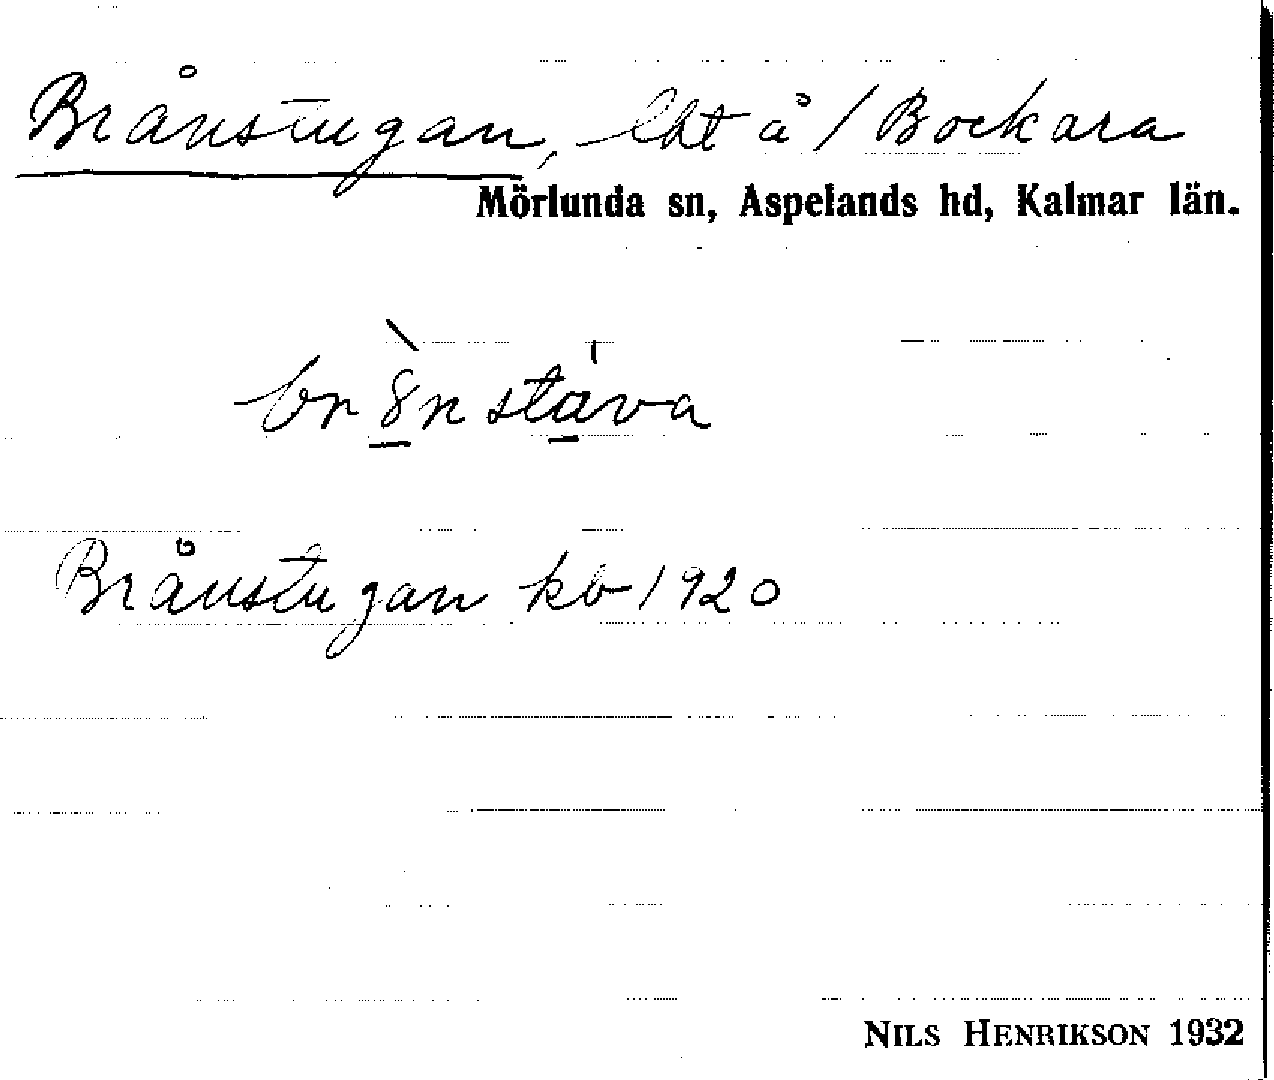 Brånstugan, lht å / Bockara
Mörlunda sn, Aspelands hd, Kalmar län.
Brånstugan kb 1920
NILS HENRIKSON 1932